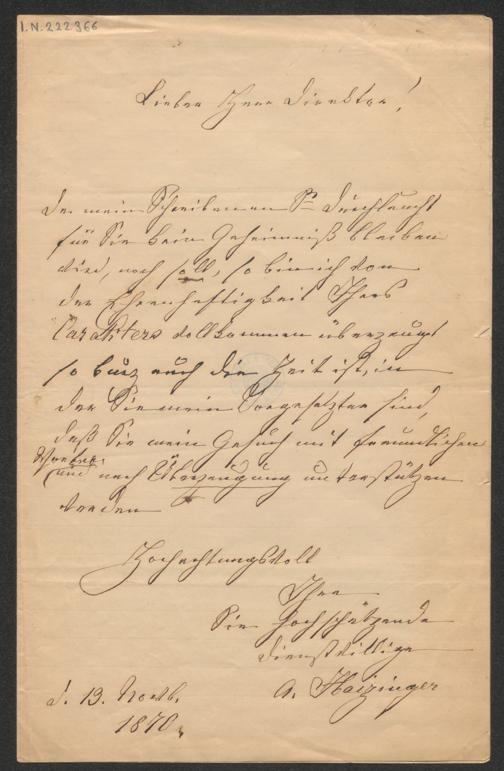 I.N. 222366
Lieber Herr Direktor!
Da mein Schreiben an Sr Durchlaucht
für Sie kein Geheimniß bleiben
wird, noch soll, so bin ich von
der Ehrenhaftigkeit Ihres
Carakters vollkommen überzeugt
so kurz auch die Zeit ist, in
der Sie mein Vorgesetzter sind,
daß Sie mein Gesuch mit freundlichen
Worten
und nach Überzeugung unterstützen
werden
Hochachtungsvoll
Ihre
Sie hochschätzende
dienstwillige
A. Haizinger
d. 13. Novb.
1870.